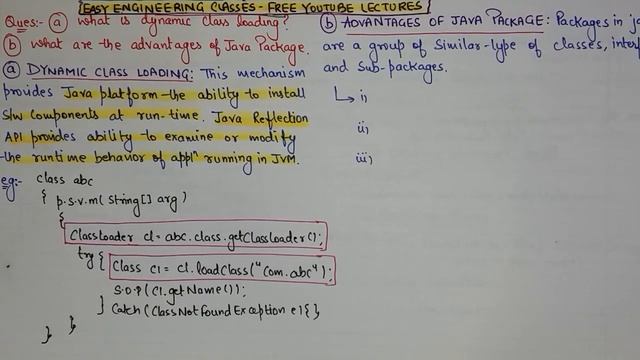 EASY ENGINEERING CLASSES - FREE YOUTUBE LECTURES
Ques:- (a) what is dynamic class loading?
(b) what are the advantages of Java Package.
(a) DYNAMIC CLASS LOADING: This mechanism
provides Java platform the ability to install
S/w components at run-time. Java Reflection
API provides ability to examine or modify
the runtime behavior of appln running in JVM.
eg:- class abc
{ p.s.v.m( String[] arg )
{
ClassLoader cl = abc.class.getClassLoader();
try {
Class c1 = cl.loadClass("com.abc");
S.O.P(c1.getName());
} catch (ClassNotFoundException e){},
} }
(b) ADVANTAGES OF JAVA PACKAGE: Packages in ja
are a group of similar-type of classes, interf
and sub-packages.
i)
ii)
iii)